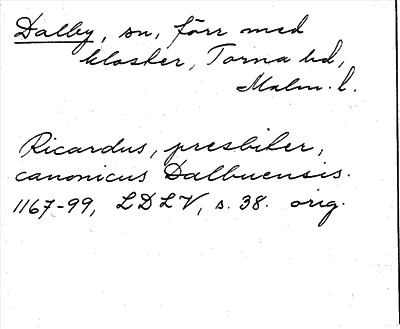 Dalby, sn, förr med
kloster, Torna hd,
Malm. l.
Ricardus, presbiter,
canonicus Dalbuensis.
1167-99, LDLV, s. 38. orig.